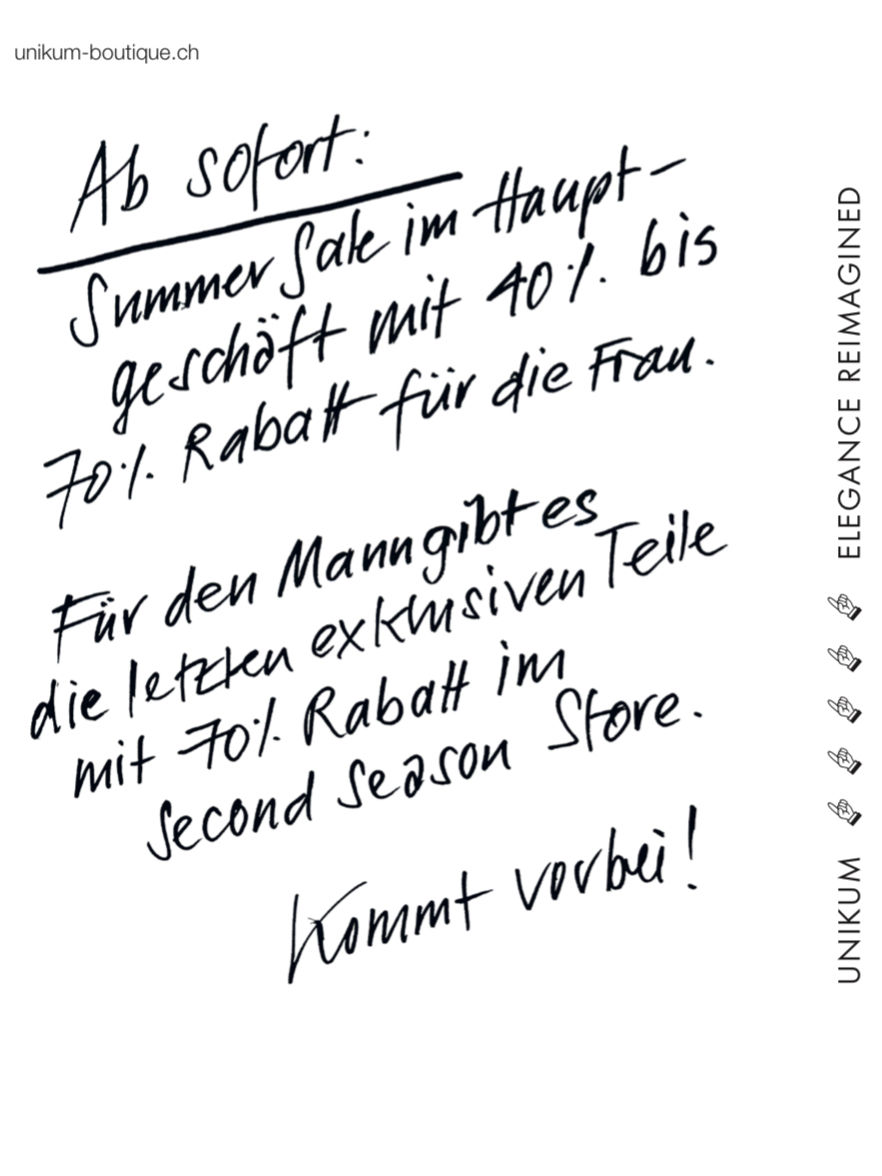 unikum-boutique.ch
Ab sofort:
Summer Sale im Haupt-
geschäft mit 40%. bis
70%. Rabatt für die Frau.
Für den Mann gibt es
die letzten exklusiven Teile
mit 70%. Rabatt im
Second Season Store.
Kommt vorbei!
UNIKUM ELEGANCE REIMAGINED